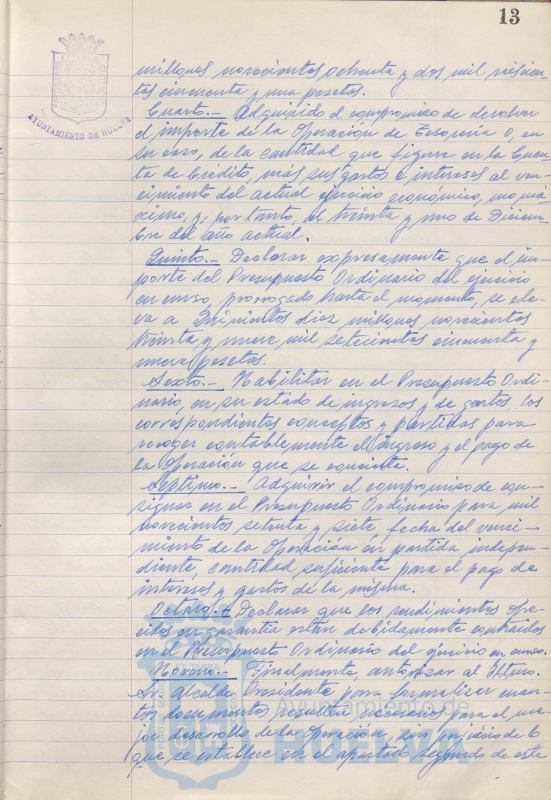 13
AYUNTAMIENTO DE HUELVA
millones novecientas ochenta y dos mil
tas cincuenta y una pesetas.
Cuarto.- Adquirido el compromiso de devolver
el importe de la Operación de Tesorería o, en
su caso, de la cantidad que figure en la Cuen
ta de Crédito, más sus gastos e intereses al ven-
cimiento del actual ejercicio económico,
ximo, y, por tanto, el treinta y uno de Diciem-
bre del año actual.
Quinto.- Declarar expresamente que el im-
porte del Presupuesto Ordinario del ejercicio
en curso, prorrogado hasta el momento, se ele-
va a Quinientos diez millones novecientos
treinta y nueve mil setecientas cincuenta y
nueve pesetas.
Sexto.- Habilitar en el Presupuesto Ordi-
nario, en su estado de ingresos y de gastos, los
correspondientes conceptos y partidas para
recoger contablemente el ingreso y el pago de
la Operación que se concierte.
Séptimo.- Adquirir el compromiso de con-
signar en el Presupuesto Ordinario para mil
novecientos setenta y siete, fecha del venci-
miento de la Operación en partida indepen-
diente, cantidad suficiente para el pago de
intereses y gastos de la misma.
Octavo.- Declarar que los rendimientos ofre-
cidos en garantía están debidamente
en el Presupuesto Ordinario del ejercicio en curso.
Noveno.- Finalmente, autorizar al Iltmo.
Sr. Alcalde Presidente para formalizar cuan-
tos documentos resulten necesarios para el me-
jor desarrollo de la Operación, sin perjuicio de lo
que se establece en el apartado segundo de este
Ayuntamiento de
HUELVA